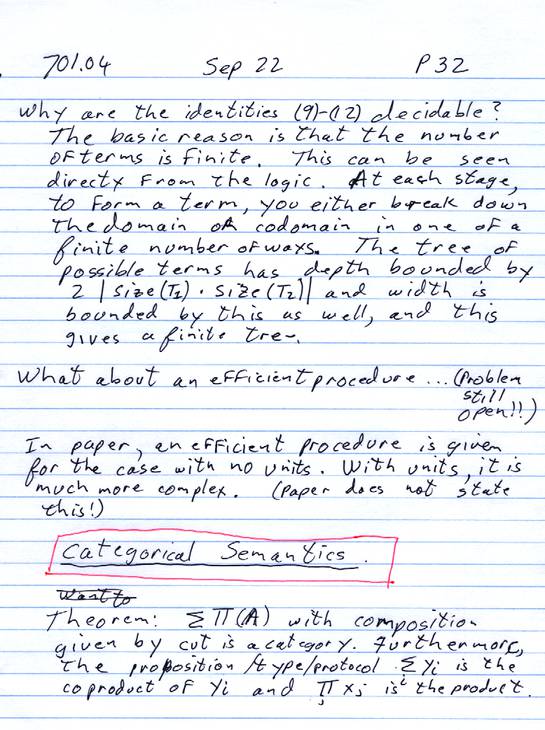 701.04 Sep 22 P 32
Why are the identities (9)-(12) decidable?
The basic reason is that the number
of terms is finite. This can be seen
directy from the logic. At each stage,
to form a term, you either break down
the domain or codomain in one of a
finite number of ways. The tree of
possible terms has depth bounded by
2 |size(T₁) · size(T₂)| and width is
bounded by this as well, and this
gives a finite tree.
What about an efficient procedure ... (Problem
still
open!!)
In paper, an efficient procedure is given
for the case with no units. With units, it is
much more complex. (Paper does not state
this!)
Categorical Semantics.
Want to
Theorem: ΣΠ(A) with composition
given by cut is a category. Furthermore,
the proposition/type/protocol Σ Yi is the
coproduct of Yi and Π Xj is the product.